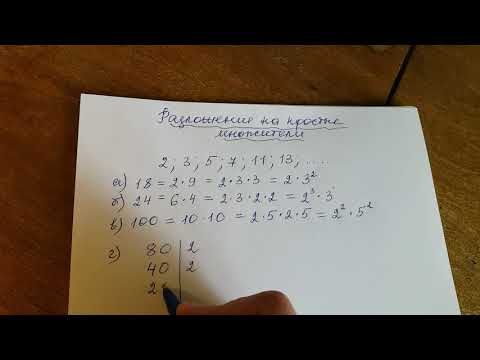 Разложение на простые
множители
2; 3; 5; 7; 11; 13; ....
а) 18 = 2 · 9 = 2 · 3 · 3 = 2 · 3²
б) 24 = 6 · 4 = 2 · 3 · 2 · 2 = 2³ · 3
в) 100 = 10 · 10 = 2 · 5 · 2 · 5 = 2² · 5²
г) 80 | 2
40 | 2
2